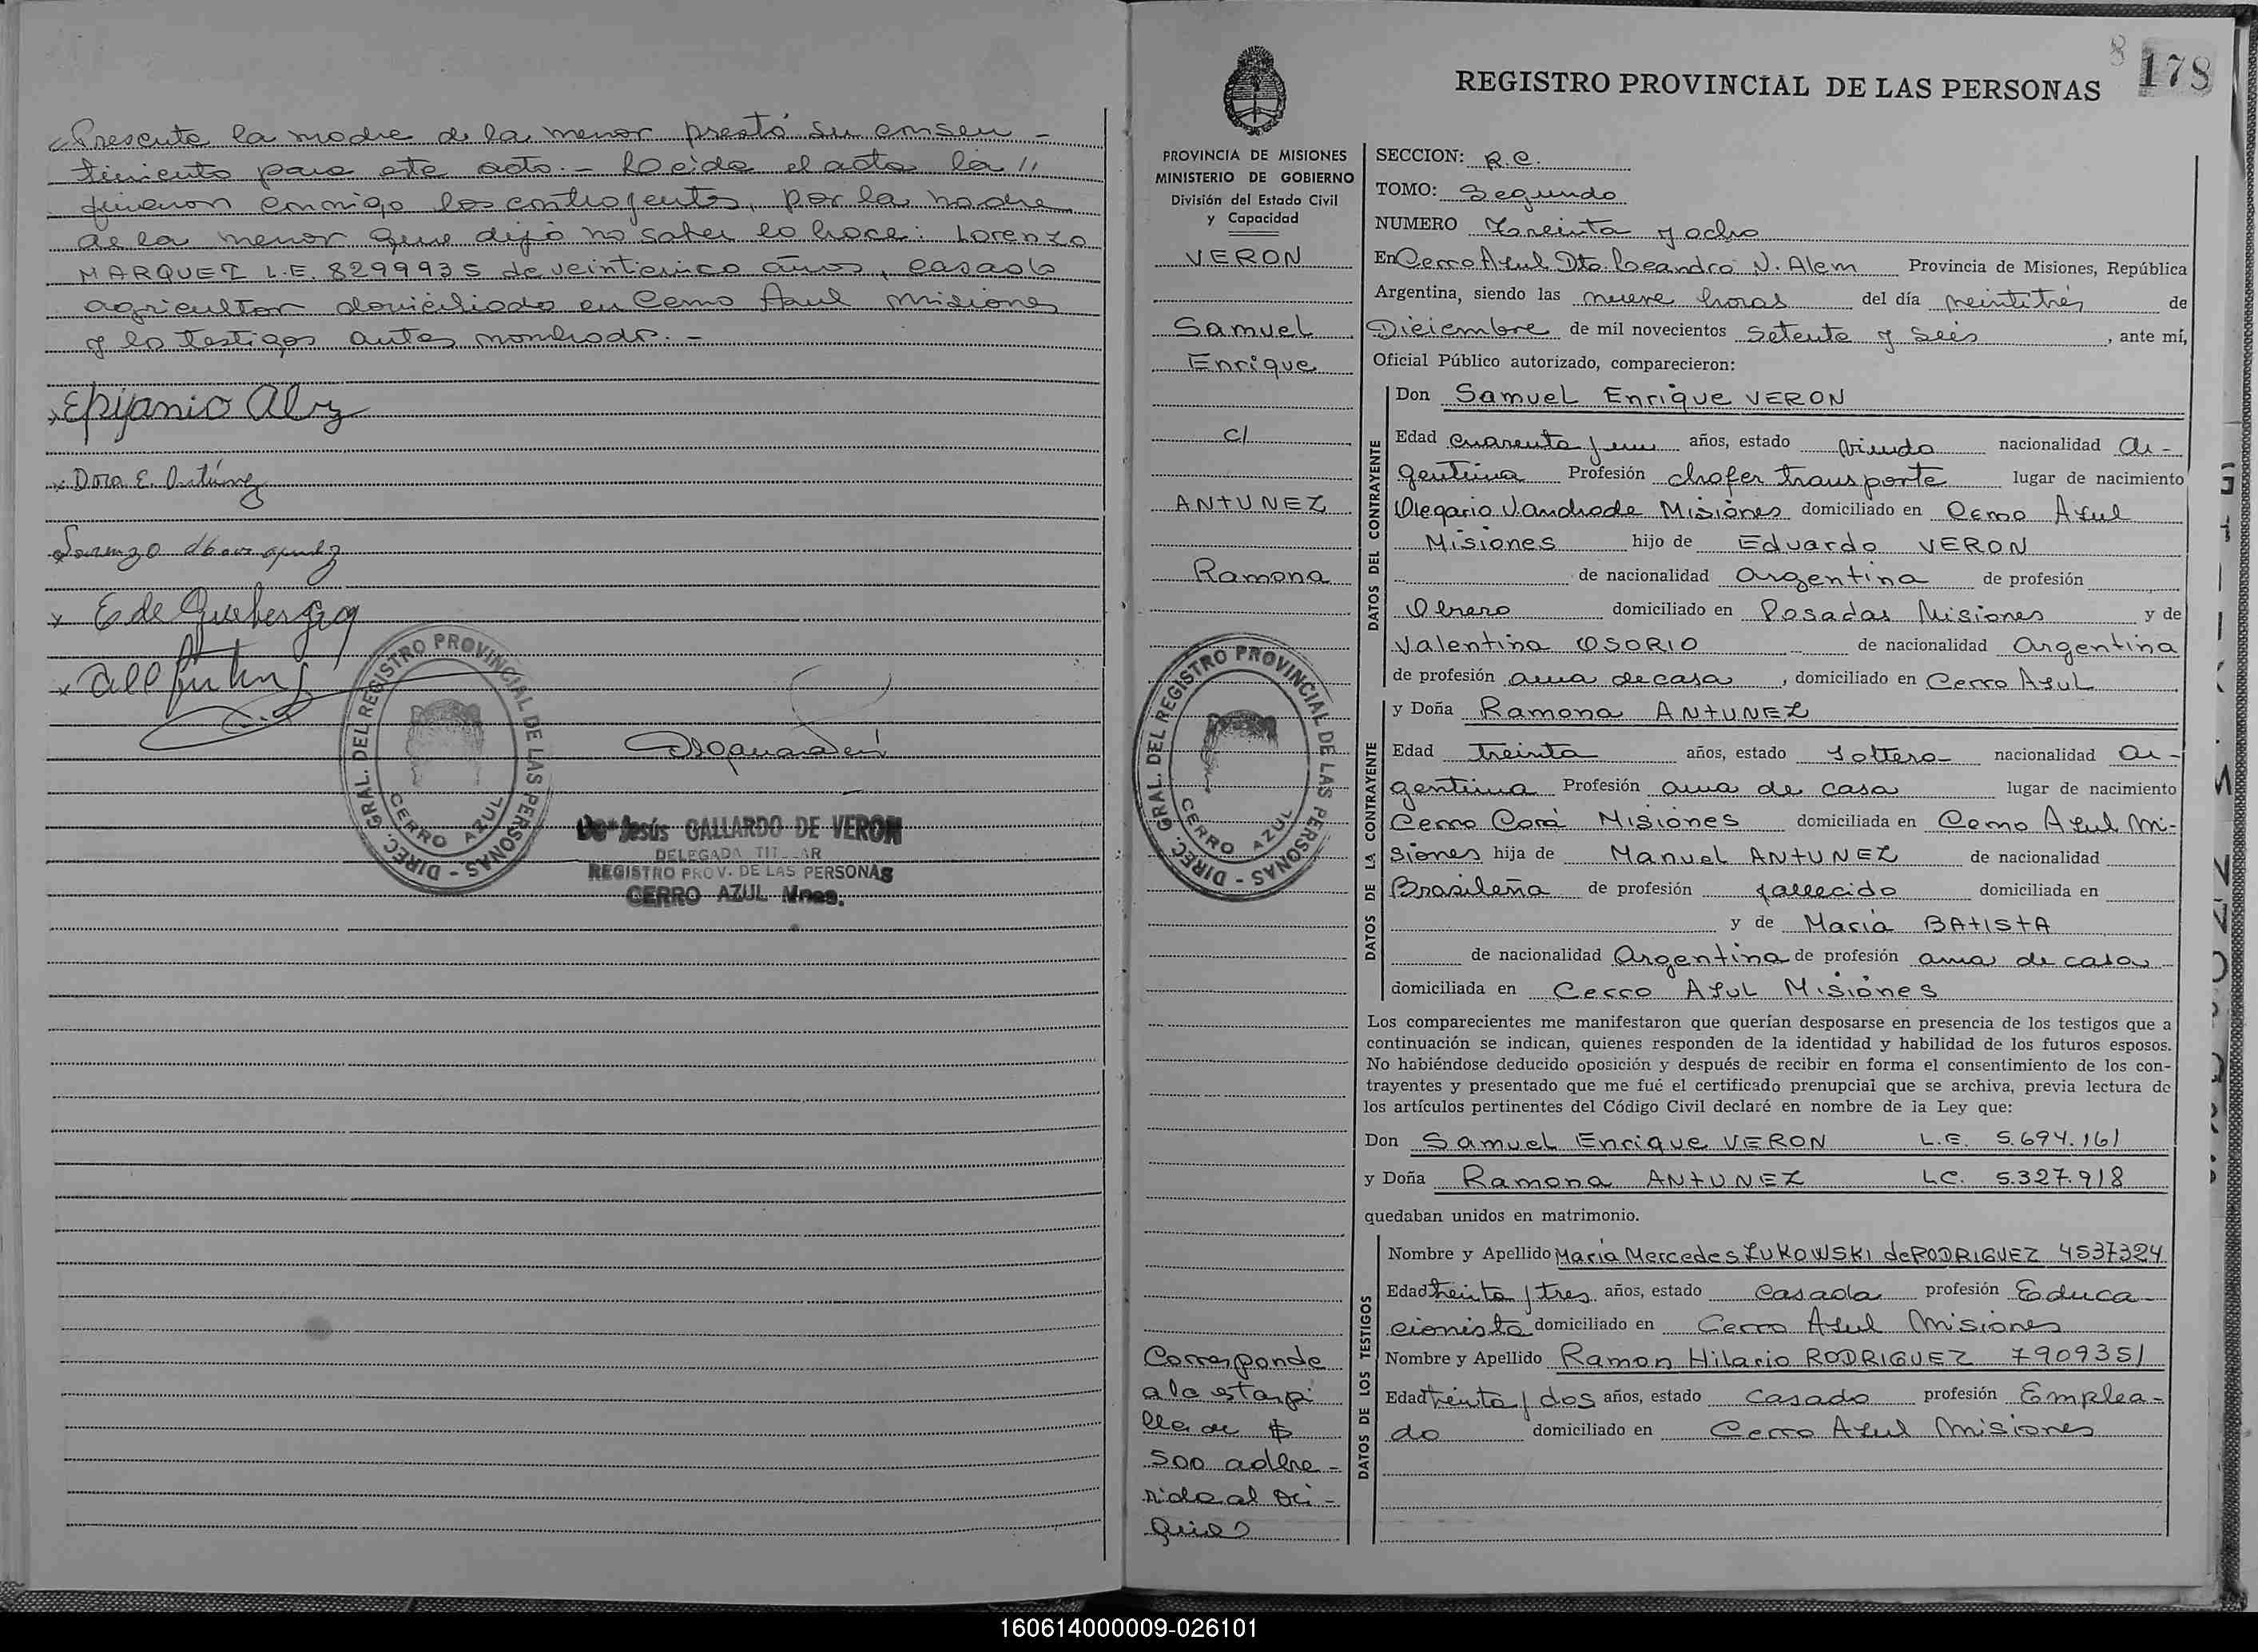 Presente la madre de la menor prestó su consen-
timiento para este acto.- Leida el acta la //
firmaron conmigo los contrayentes, por la madre
de la menor que dijo no saber lo hace: Lorenzo
MARQUEZ L.E. 8299935 de veinticinco años, casado
agricultor domiciliado en Cerro Azul Misiones
y los testigos antes nombrados.-
Epifanio
Dora E. Antúnez
Lorenzo
E de
DIREC. GRAL. DEL REGISTRO PROVINCIAL DE LAS PERSONAS -
CERRO AZUL
Jesús GALLARDO DE VERON
DELEGADA TIT AR
REGISTRO PROV. DE LAS PERSONAS
CERRO AZUL Mnes.
8 178
REGISTRO PROVINCIAL DE LAS PERSONAS
PROVINCIA DE MISIONES
MINISTERIO DE GOBIERNO
División del Estado Civil
y Capacidad
VERON
Samuel
Enrique
c/
ANTUNEZ
Ramona
DIREC. GRAL. DEL REGISTRO PROVINCIAL DE LAS PERSONAS -
CERRO AZUL
Corresponde
a la estampi
lla de $
500 adhe-
rida al ori-
SECCION: R.C.
TOMO: Segundo
NUMERO Treinta y ocho
En Cerro Azul Dto. Leandro N. Alem Provincia de Misiones, República
Argentina, siendo las nueve horas del día veintitrés de
Diciembre de mil novecientos Setenta y Seis, ante mí,
Oficial Público autorizado, comparecieron:
DATOS DEL CONTRAYENTE
Don Samuel Enrique VERON
Edad cuarenta y un años, estado Viudo nacionalidad Ar-
gentina Profesión chofer transporte lugar de nacimiento
Olegario V. Andrade Misiones domiciliado en Cerro Azul
Misiones hijo de Eduardo VERON
de nacionalidad Argentina de profesión
Obrero domiciliado en Posadas Misiones y de
Valentina OSORIO de nacionalidad Argentina
de profesión ama de casa, domiciliado en Cerro Azul
DATOS DE LA CONTRAYENTE
y Doña Ramona ANTUNEZ
Edad treinta años, estado Soltera- nacionalidad Ar-
gentina Profesión ama de casa lugar de nacimiento
Cerro Corá Misiones domiciliada en Cerro Azul Mi-
siones hija de Manuel ANTUNEZ de nacionalidad
Brasileña de profesión fallecido domiciliada en
y de María BATISTA
de nacionalidad Argentina de profesión ama de casa
domiciliada en Cerro Azul Misiones
Los comparecientes me manifestaron que querían desposarse en presencia de los testigos que a
continuación se indican, quienes responden de la identidad y habilidad de los futuros esposos.
No habiéndose deducido oposición y después de recibir en forma el consentimiento de los con-
trayentes y presentado que me fué el certificado prenupcial que se archiva, previa lectura de
los artículos pertinentes del Código Civil declaré en nombre de la Ley que:
Don Samuel Enrique VERON L.E. 5.694.161
y Doña Ramona ANTUNEZ LC. 5.327.918
quedaban unidos en matrimonio.
DATOS DE LOS TESTIGOS
Nombre y Apellido María Mercedes ZUKOWSKI de RODRIGUEZ 4537324
Edad treinta y tres años, estado Casada profesión Educa-
cionista domiciliado en Cerro Azul Misiones
Nombre y Apellido Ramon Hilario RODRIGUEZ 7909351
Edad treinta y dos años, estado Casado profesión Emplea-
do domiciliado en Cerro Azul Misiones
160614000009-026101